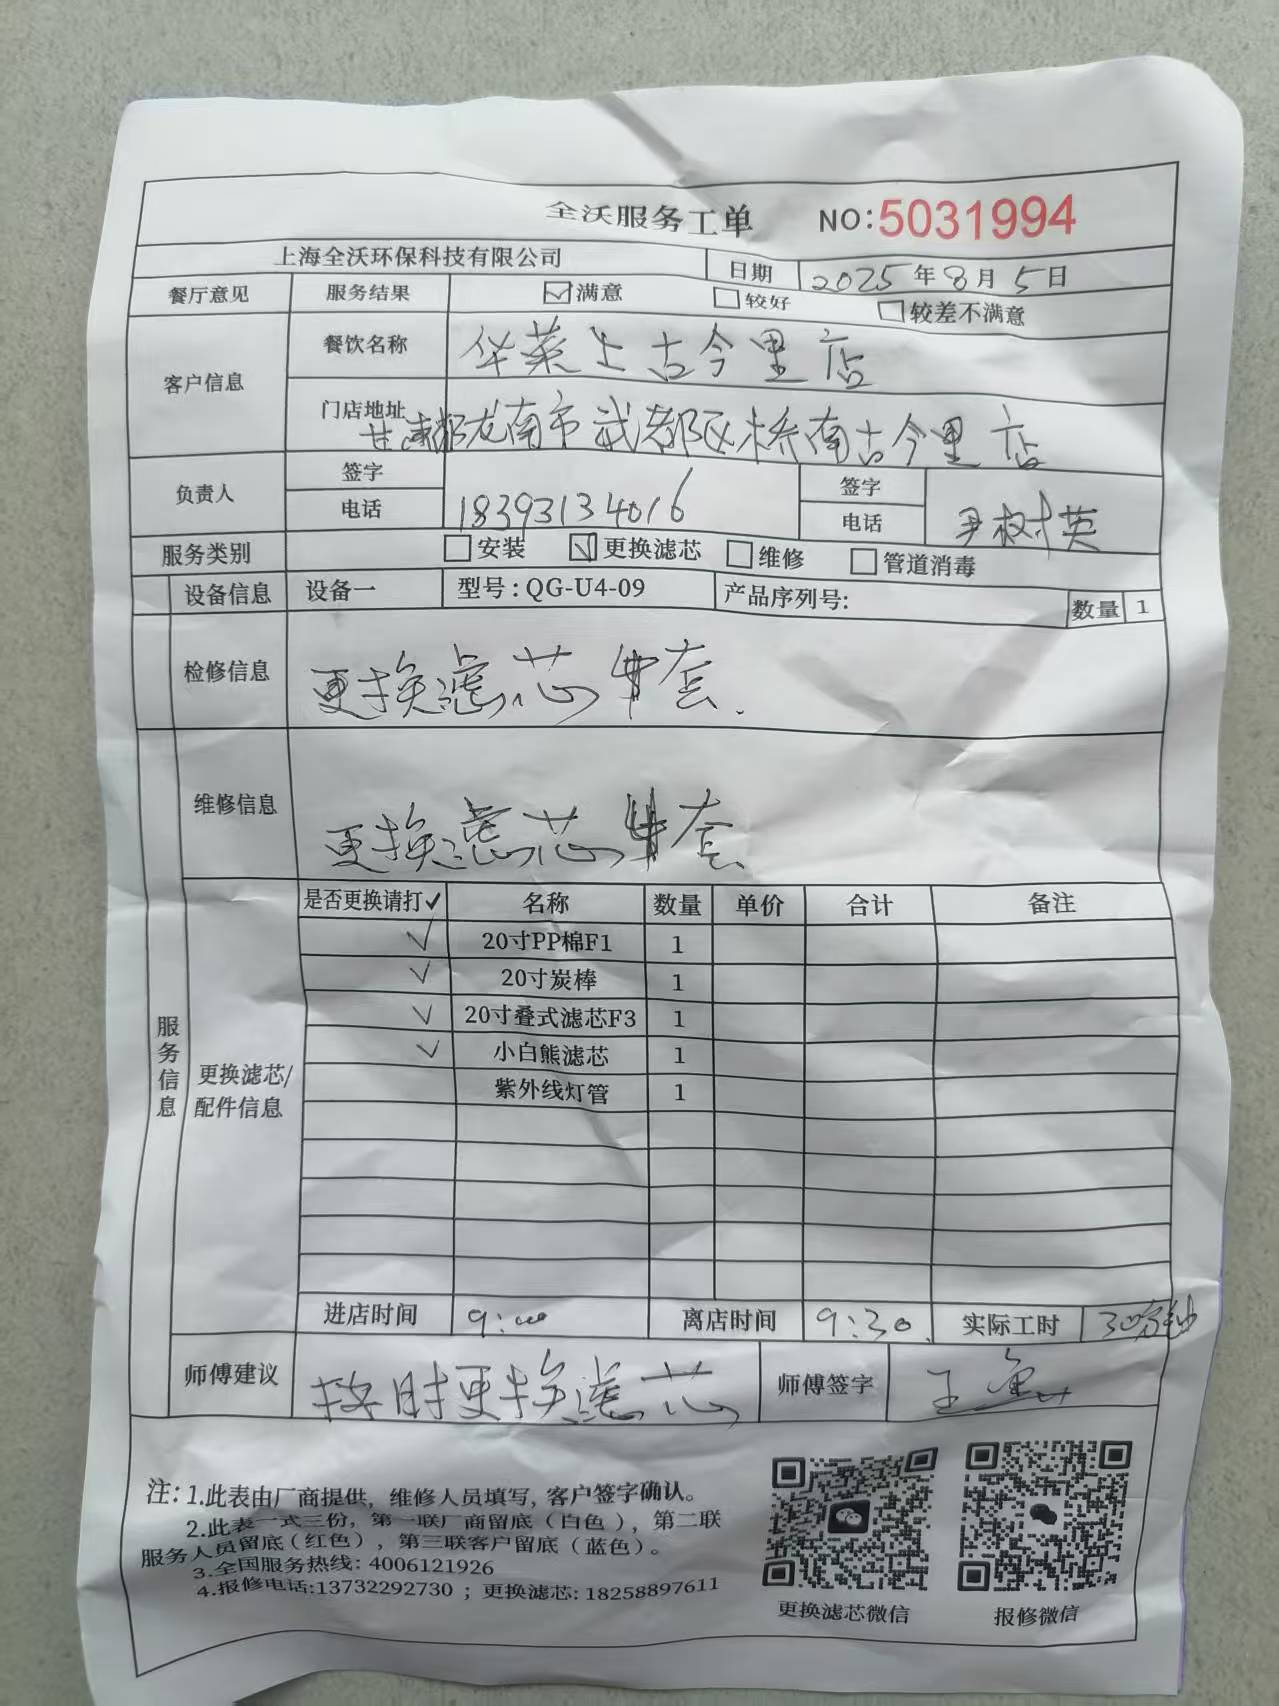 全沃服务工单 NO:5031994
上海全沃环保科技有限公司 日期 2025年8月5日
餐厅意见 服务结果 ☑满意 □较好 □较差不满意
客户信息 餐饮名称 华莱士古今里店
门店地址 甘肃 龙南市武都区桥南古今里店
负责人 签字 签字 尹树英
电话 18393134016 电话
服务类别 □安装 ☑更换滤芯 □维修 □管道消毒
设备信息 设备一 型号:QG-U4-09 产品序列号: 数量 1
检修信息 更换滤芯 套.
服务信息
维修信息 更换滤芯 套
更换滤芯/配件信息
是否更换请打✓ 名称 数量 单价 合计 备注
✓ 20寸PP棉F1 1
✓ 20寸炭棒 1
✓ 20寸叠式滤芯F3 1
✓ 小白熊滤芯 1
紫外线灯管 1
进店时间 9:00 离店时间 9:30 实际工时 30分钟
师傅建议 按时更换滤芯 师傅签字 王
注: 1.此表由厂商提供, 维修人员填写, 客户签字确认。
2.此表一式三份, 第一联厂商留底(白色), 第二联
服务人员留底(红色), 第三联客户留底(蓝色)。
3.全国服务热线: 4006121926
4.报修电话:13732292730 ; 更换滤芯: 18258897611
更换滤芯微信 报修微信